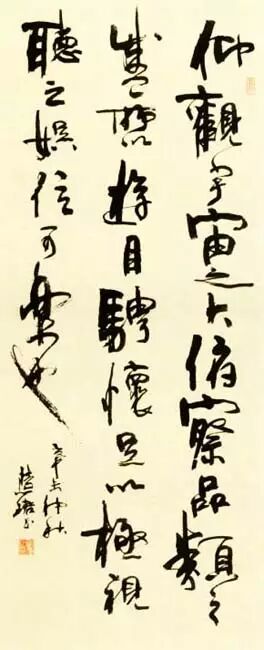 仰觀宇宙之大俯察品類之
盛所以遊目騁懷足以極視
聽之娛信可樂也
仲秋